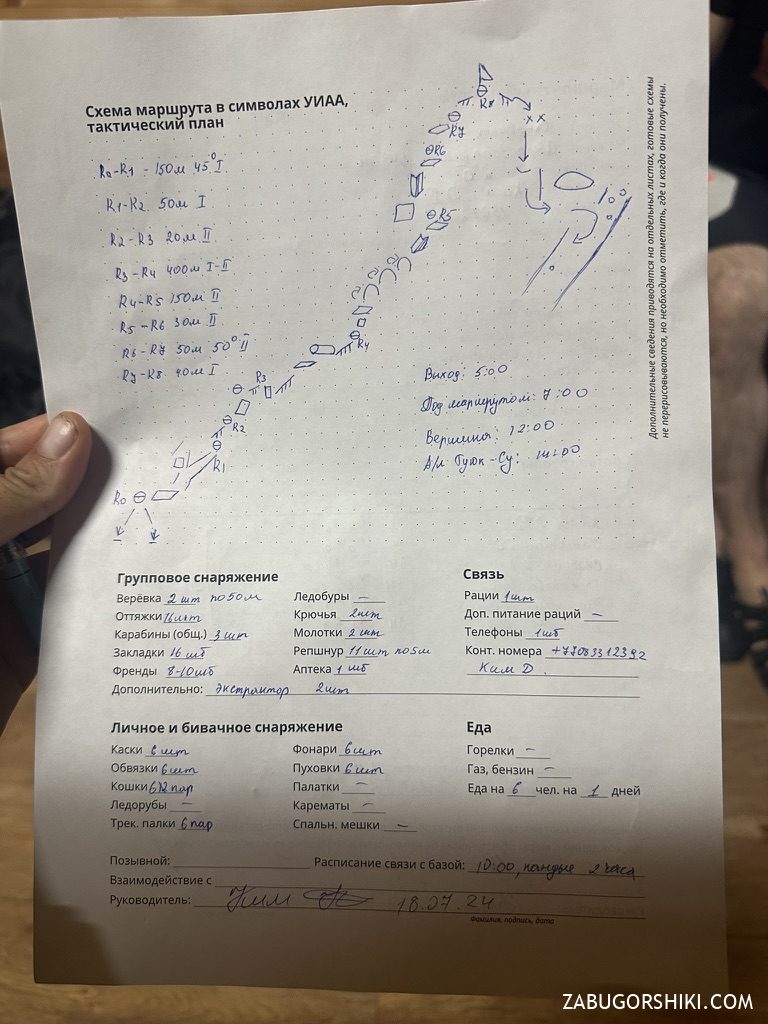 Схема маршрута в символах УИАА,
тактический план
R0-R1 - 150м 45° I
R1-R2 50м I
R2-R3 20м II
R3-R4 400м I-II
R4-R5 150м II
R5-R6 30м II
R6-R7 50м 50° II
R7-R8 40м I
R8
R7
R6
R5
R4
R3
R2
R1
R0
Выход: 5:00
Под маршрутом: 7:00
Вершина: 12:00
А/л Туюк-Су: 14:00
Дополнительные сведения приводятся на отдельных листах, готовые схемы
не перерисовываются, но необходимо отметить, где и когда они получены.
Групповое снаряжение
Верёвка 2 шт по 50м
Оттяжки 16шт
Карабины (общ.) 3 шт
Закладки 16 шт
Френды 8-10шт
Ледобуры —
Крючья 2шт
Молотки 2 шт
Репшнур 11 шт по 5м
Аптека 1 шт
Дополнительно: экстрактор 2шт
Связь
Рации 1шт
Доп. питание раций —
Телефоны 1шт
Конт. номера +77083312392
Ким D.
Личное и бивачное снаряжение
Каски 6 шт
Обвязки 6шт
Кошки пар
Ледорубы —
Трек. палки 6 пар
Фонари 6шт
Пуховки 6шт
Палатки —
Карематы —
Спальн. мешки —
Еда
Горелки —
Газ, бензин —
Еда на 6 чел. на 1 дней
Позывной:
Расписание связи с базой: 10:00, каждые 2 часа
Взаимодействие с
Руководитель: Ким 18.07.24
Фамилия, подпись, дата
ZABUGORSHIKI.COM